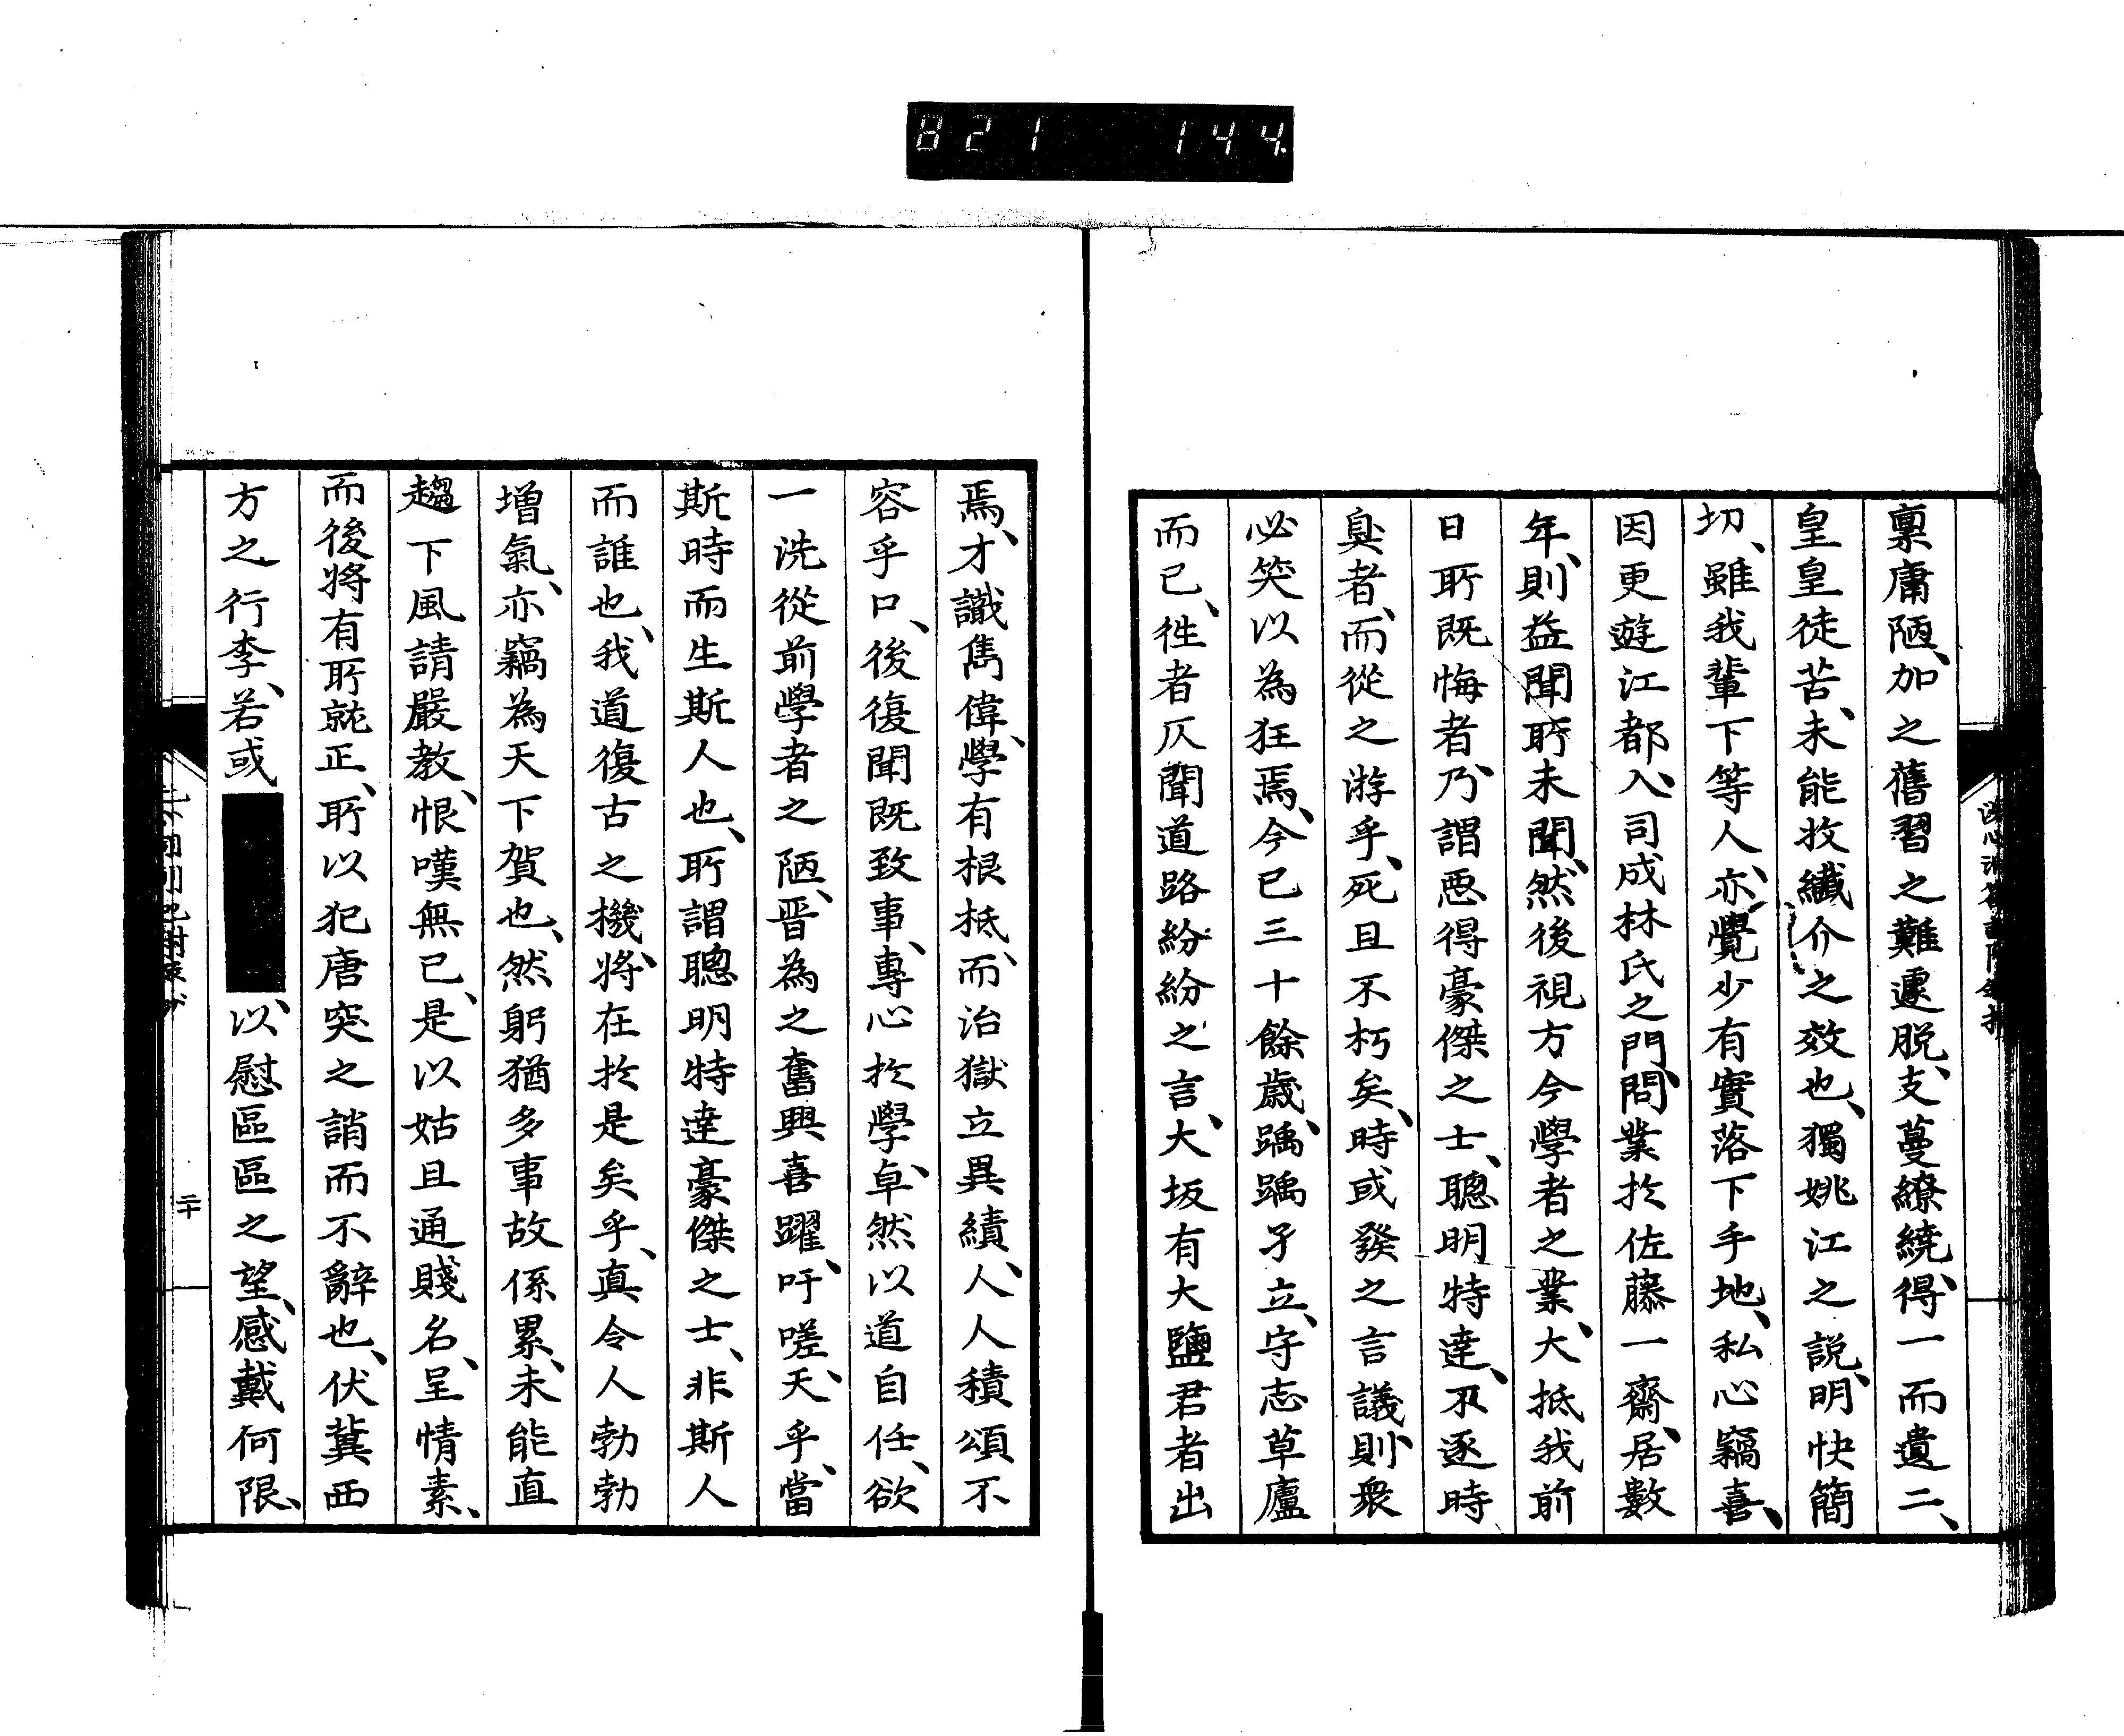 821 144
稟庸陋、加之舊習之難遽脱、支蔓繚繞、得一而遺二、
皇皇徒苦、未能收纖介之效也、獨姚江之説、明快簡
切、雖我輩下等人、亦覺少有實落下手地、私心竊喜、
因更遊江都、入司成林氏之門、問業於佐藤一齋、居數
年、則益聞所未聞、然後視方今學者之業、大抵我前
日所既悔者、乃謂惡得豪傑之士、聰明特達、不逐時
臭者、而從之游乎、死且不朽矣、時或發之言議、則衆
必笑以為狂焉、今已三十餘歳、踽踽孑立、守志草廬
而已、徃者仄聞道路紛紛之言、大坂有大鹽君者出
焉、才識雋偉、學有根柢、而治獄立異績、人人積頌不
容乎口、後復聞既致事、專心於學、卓然以道自任、欲
一洗從前學者之陋、晉為之奮興喜躍、吁嗟天乎、當
斯時而生斯人也、所謂聰明特達豪傑之士、非斯人
而誰也、我道復古之機、將在於是矣乎、真令人勃勃
増氣、亦竊為天下賀也、然躬猶多事故係累、未能直
趨下風請嚴教、恨嘆無已、是以姑且通賤名、呈情素、
而後將有所就正、所以犯唐突之誚而不辭也、伏冀西
方之行李、若或
以慰區區之望、感戴何限、
二十